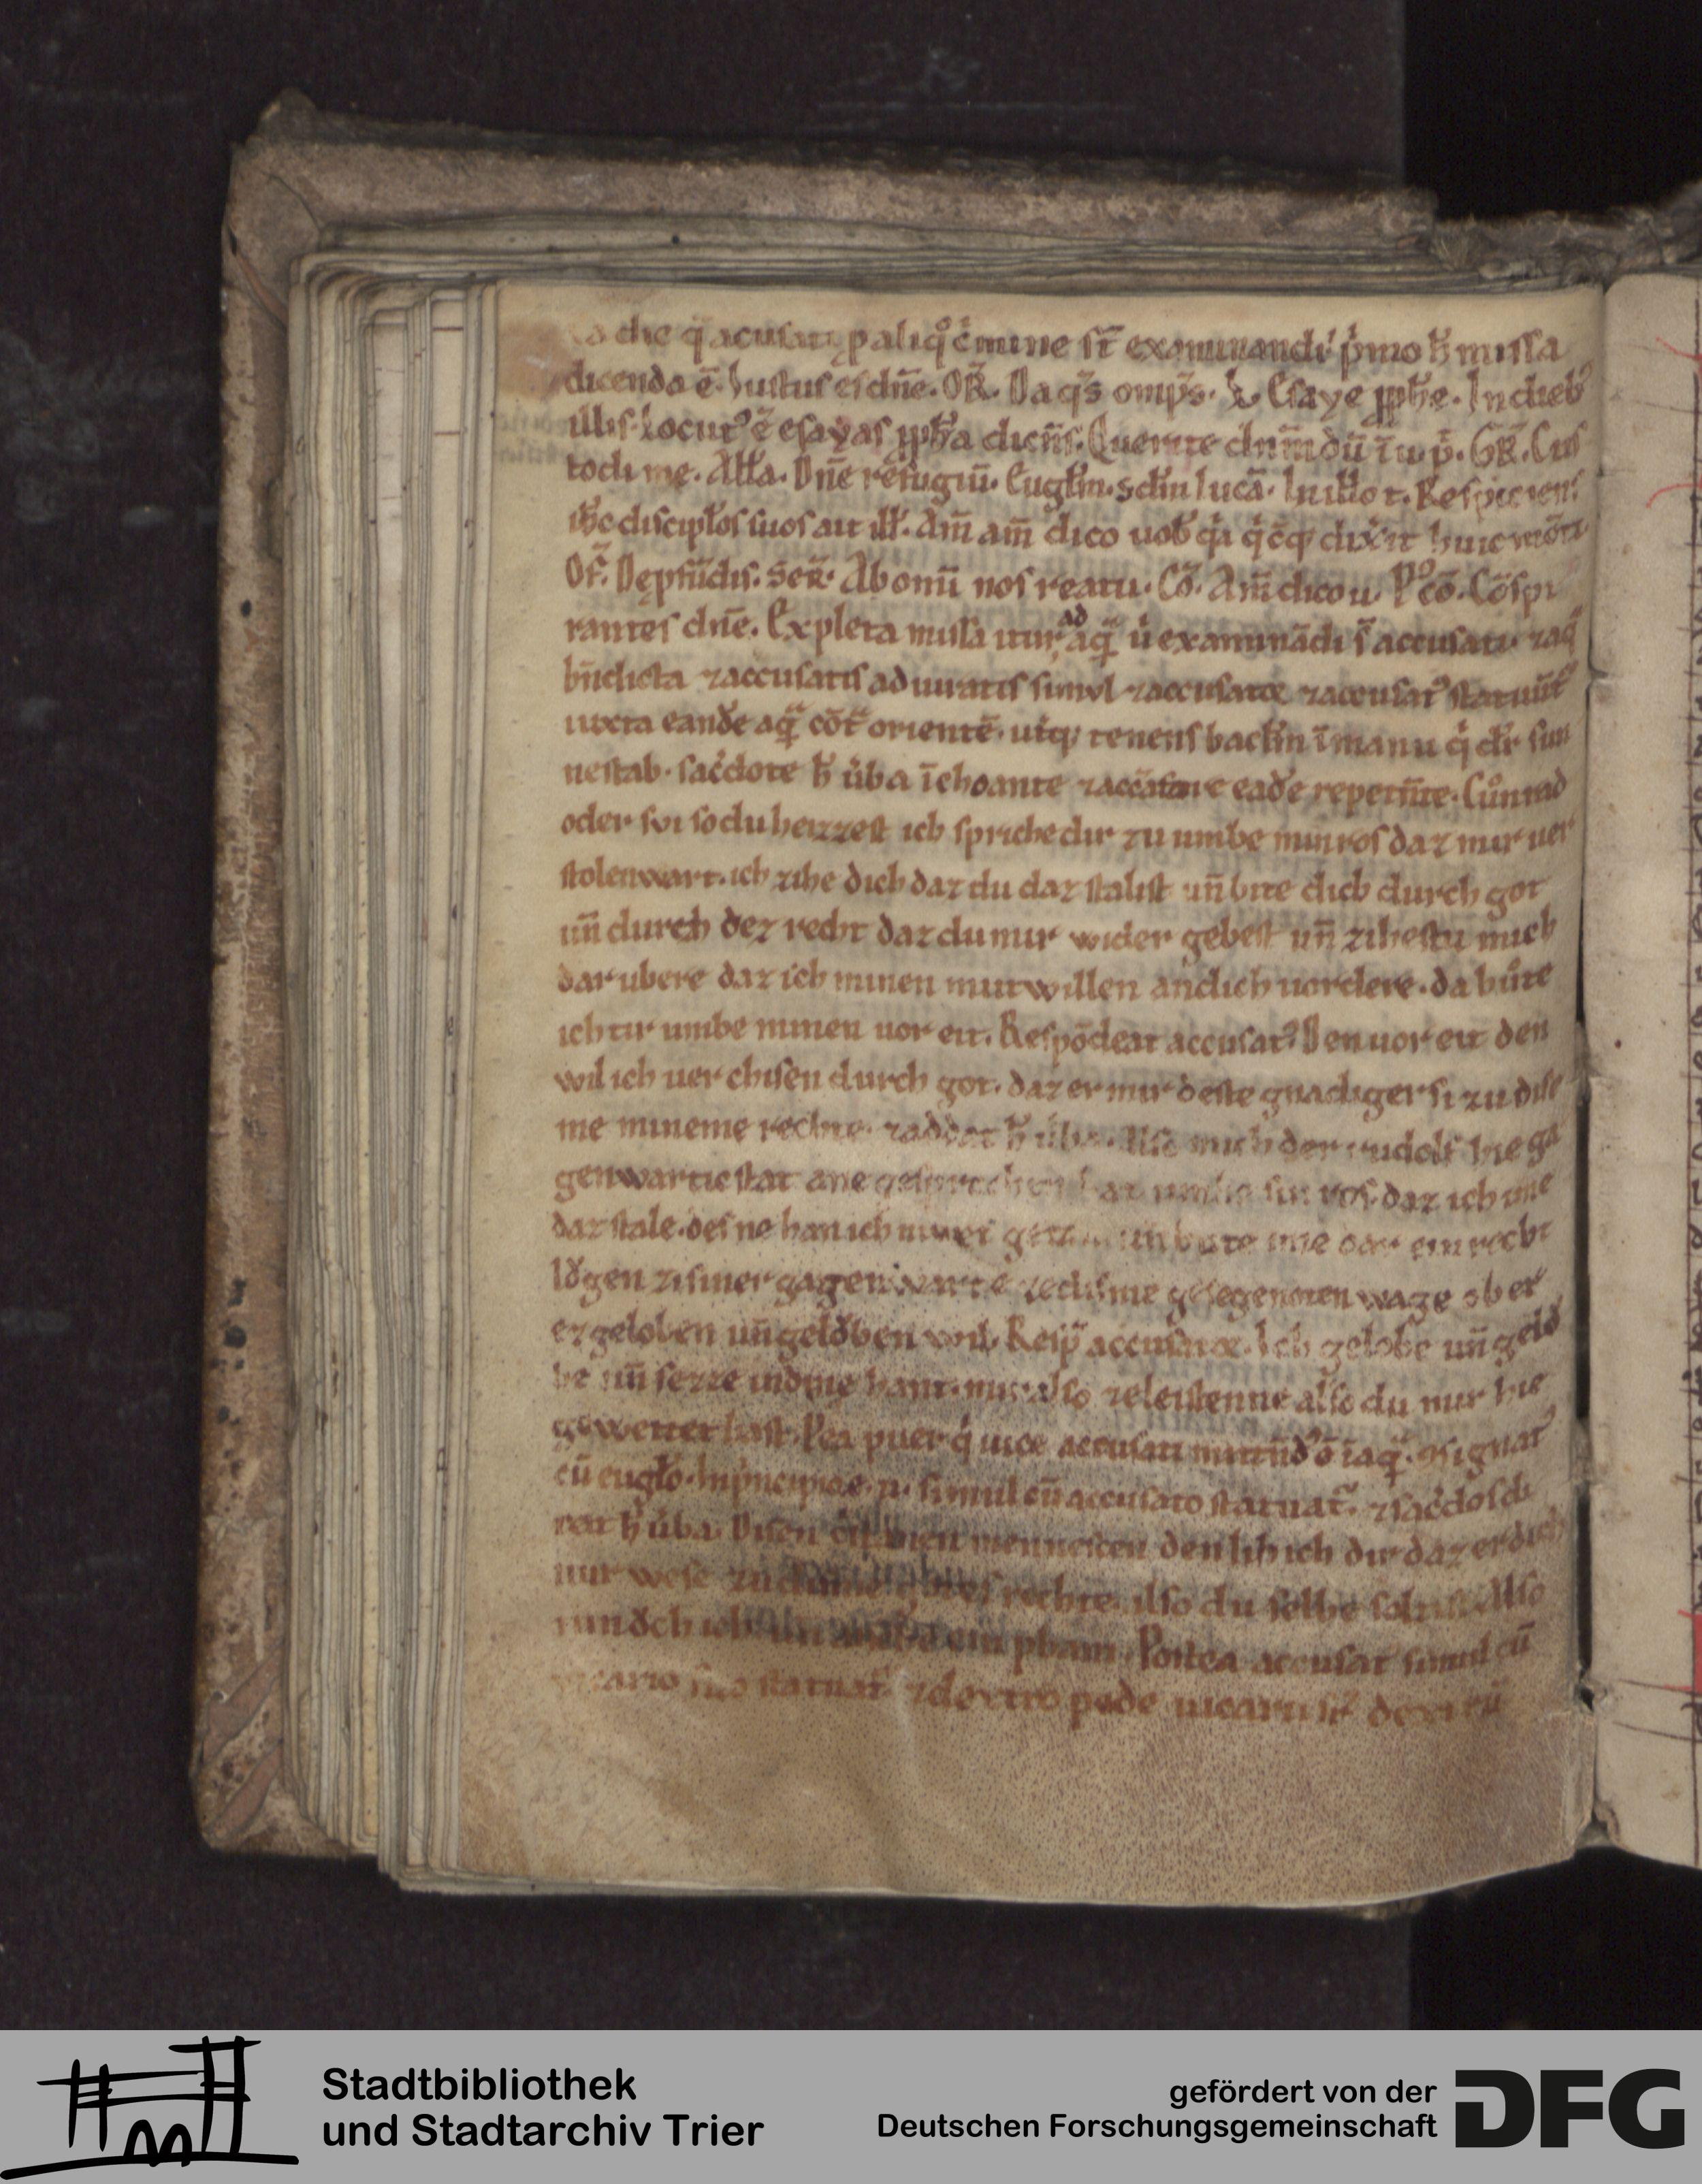 a die q̄ acusati p aliq̊ c̓mine st̄ examinandi p̓mo h̄ missa
dicenda ē. Iustus es dn̄e. OR̄. Da q̄s omp̄s. Esaye pphe. In dieb᾽
illis. Locut᾽ ē esayas ppha dicens. Querite dnm̄ dū ī u p̄. GR̄. Cus
todi me. All̄a. Dn̄e refugiū. Euglm̄. scdm̄ lucā. In illo t. Respiciens
ih̄c discip̄los suos ait ill̄. Am̄ am̄ dico uob̄ q̓a q̓cq dix̓it huic mōti
Of̄. De ꝓfūdis. Sec̄. Ab omī nos reatu. Cō. Am̄ dico u. P᾽ cō. Cōspi
rantes dn̄e. Expleta missa itur ad aq̄ u̓ examinādi s̄ accusati ⁊ aq̄
bn̄dicta ⁊ accusatis ad iuratis simul ⁊ accusator ⁊ accusat᾽ statuūt᾽
iuxta eandē aq̄ cōt᾽ orientē. utq; tenens baclm̄ ī manu q̓ dr̄ sui
nestab. sac̓dote h̄ u̓ba īchoante ⁊ eadē repetente. Cůnrad
oder sui so du heizzest ich spriche dir zu umbe min ros daz mir uer
stolen wart. ich zihe dich daz du daz stalist un̄ bite dich durch got
un̄ durch dez recht daz du mir wider gebest un̄ zihestu mich
dar ubere daz ich minen mutwillen an dich uordere. da bůte
ich tir umbe minen uor eit. Respōdeat accusat᾽ Den uor eit den
wil ich uer chisen durch got. daz er mir deste gnadiger si zu dise
me mineme rechte. ⁊ addat h̄ u̓ba. Also mich der rudolf hie ga
genwartic stat ane gesprochen hat umbe sin ros. daz ich ime
daz stale. des ne han ich niwet getan un̄ bute ime dar ein recht
lǒgen zi siner gagenwarte ze disme gesegenoten wage ob er
ez geloben un̄ gelǒben wil. Resp̄ accusator. Ich gelobe un̄ gelǒ
be un̄ sezze in dine hant. mir also ze leistenne also du mir hie
gewettet hast. Postea puer q̓ uice accusati mittēd᾽ ē ī aq̄. ꝯsignat᾽
cū euglo. In principio. simul cū accusato statuat᾽. ⁊ sac̓dos di
cat h̄ u̓ba. Disen mennescen den lih ich dir daz er dich
mir wese zu dineme rechte also du selbe soltist. Also
tun ǒch ich pham. Postea accusat simul cū
uicario suo statuat᾽ ⁊ dextro pede uicarii sr̄ dextrū
Stadtbibliothek
und Stadtarchiv Trier
gefördert von der
Deutschen Forschungsgemeinschaft
DFG